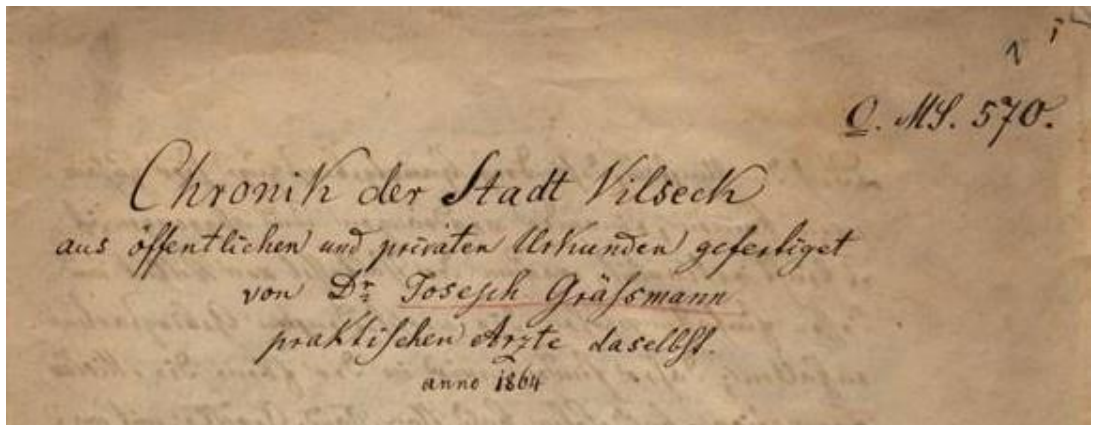 O. MS. 570.
Chronik der Stadt Vilseck
aus öffentlichen und privaten Urkunden gefertiget
von Dr. Joseph Gräßmann
praktischen Arzte daselbst.
anno 1864